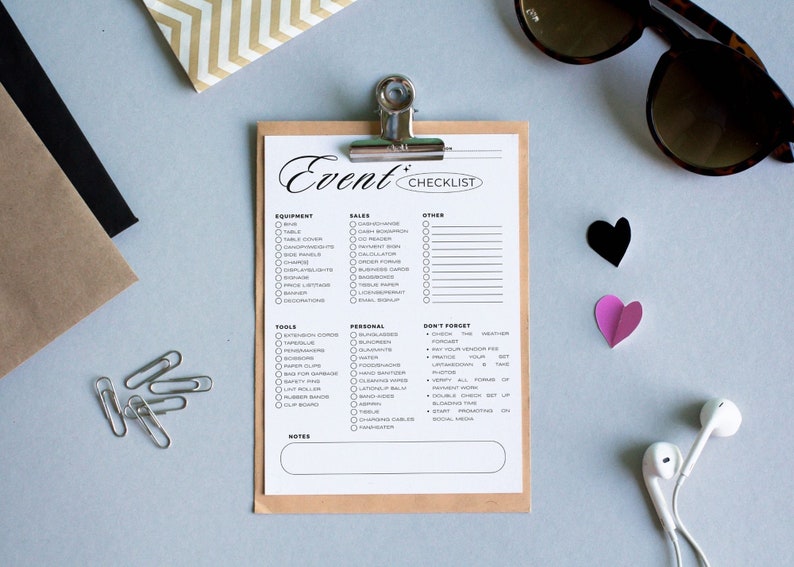 Event CHECKLIST
EQUIPMENT
BINS
TABLE
TABLE COVER
CANOPY/WEIGHTS
SIDE PANELS
CHAIR(S)
DISPLAYS/LIGHTS
SIGNAGE
PRICE LIST/TAGS
BANNER
DECORATIONS
SALES
CASH/CHANGE
CASH BOX/APRON
CC READER
PAYMENT SIGN
CALCULATOR
ORDER FORMS
BUSINESS CARDS
BAGS/BOXES
TISSUE PAPER
LICENSE/PERMIT
EMAIL SIGNUP
OTHER
TOOLS
EXTENSION CORDS
TAPE/GLUE
PENS/MAKERS
SCISSORS
PAPER CLIPS
BAG FOR GARBAGE
SAFETY PINS
LINT ROLLER
RUBBER BANDS
CLIP BOARD
PERSONAL
SUNGLASSES
SUNCREEN
GUM/MINTS
WATER
FOOD/SNACKS
HAND SANITIZER
CLEANING WIPES
LATION/LIP BALM
BAND-AIDES
ASPIRIN
TISSUE
CHARGING CABLES
FAN/HEATER
DON'T FORGET
CHECK THE WEATHER
FORCAST
PAY YOUR VENDOR FEE
PRATICE YOUR SET
UP/TAKEDOWN & TAKE
PHOTOS
VERIFY ALL FORMS OF
PAYMENT WORK
DOUBLE CHECK SET UP
&LOADING TIME
START PROMOTING ON
SOCIAL MEDIA
NOTES